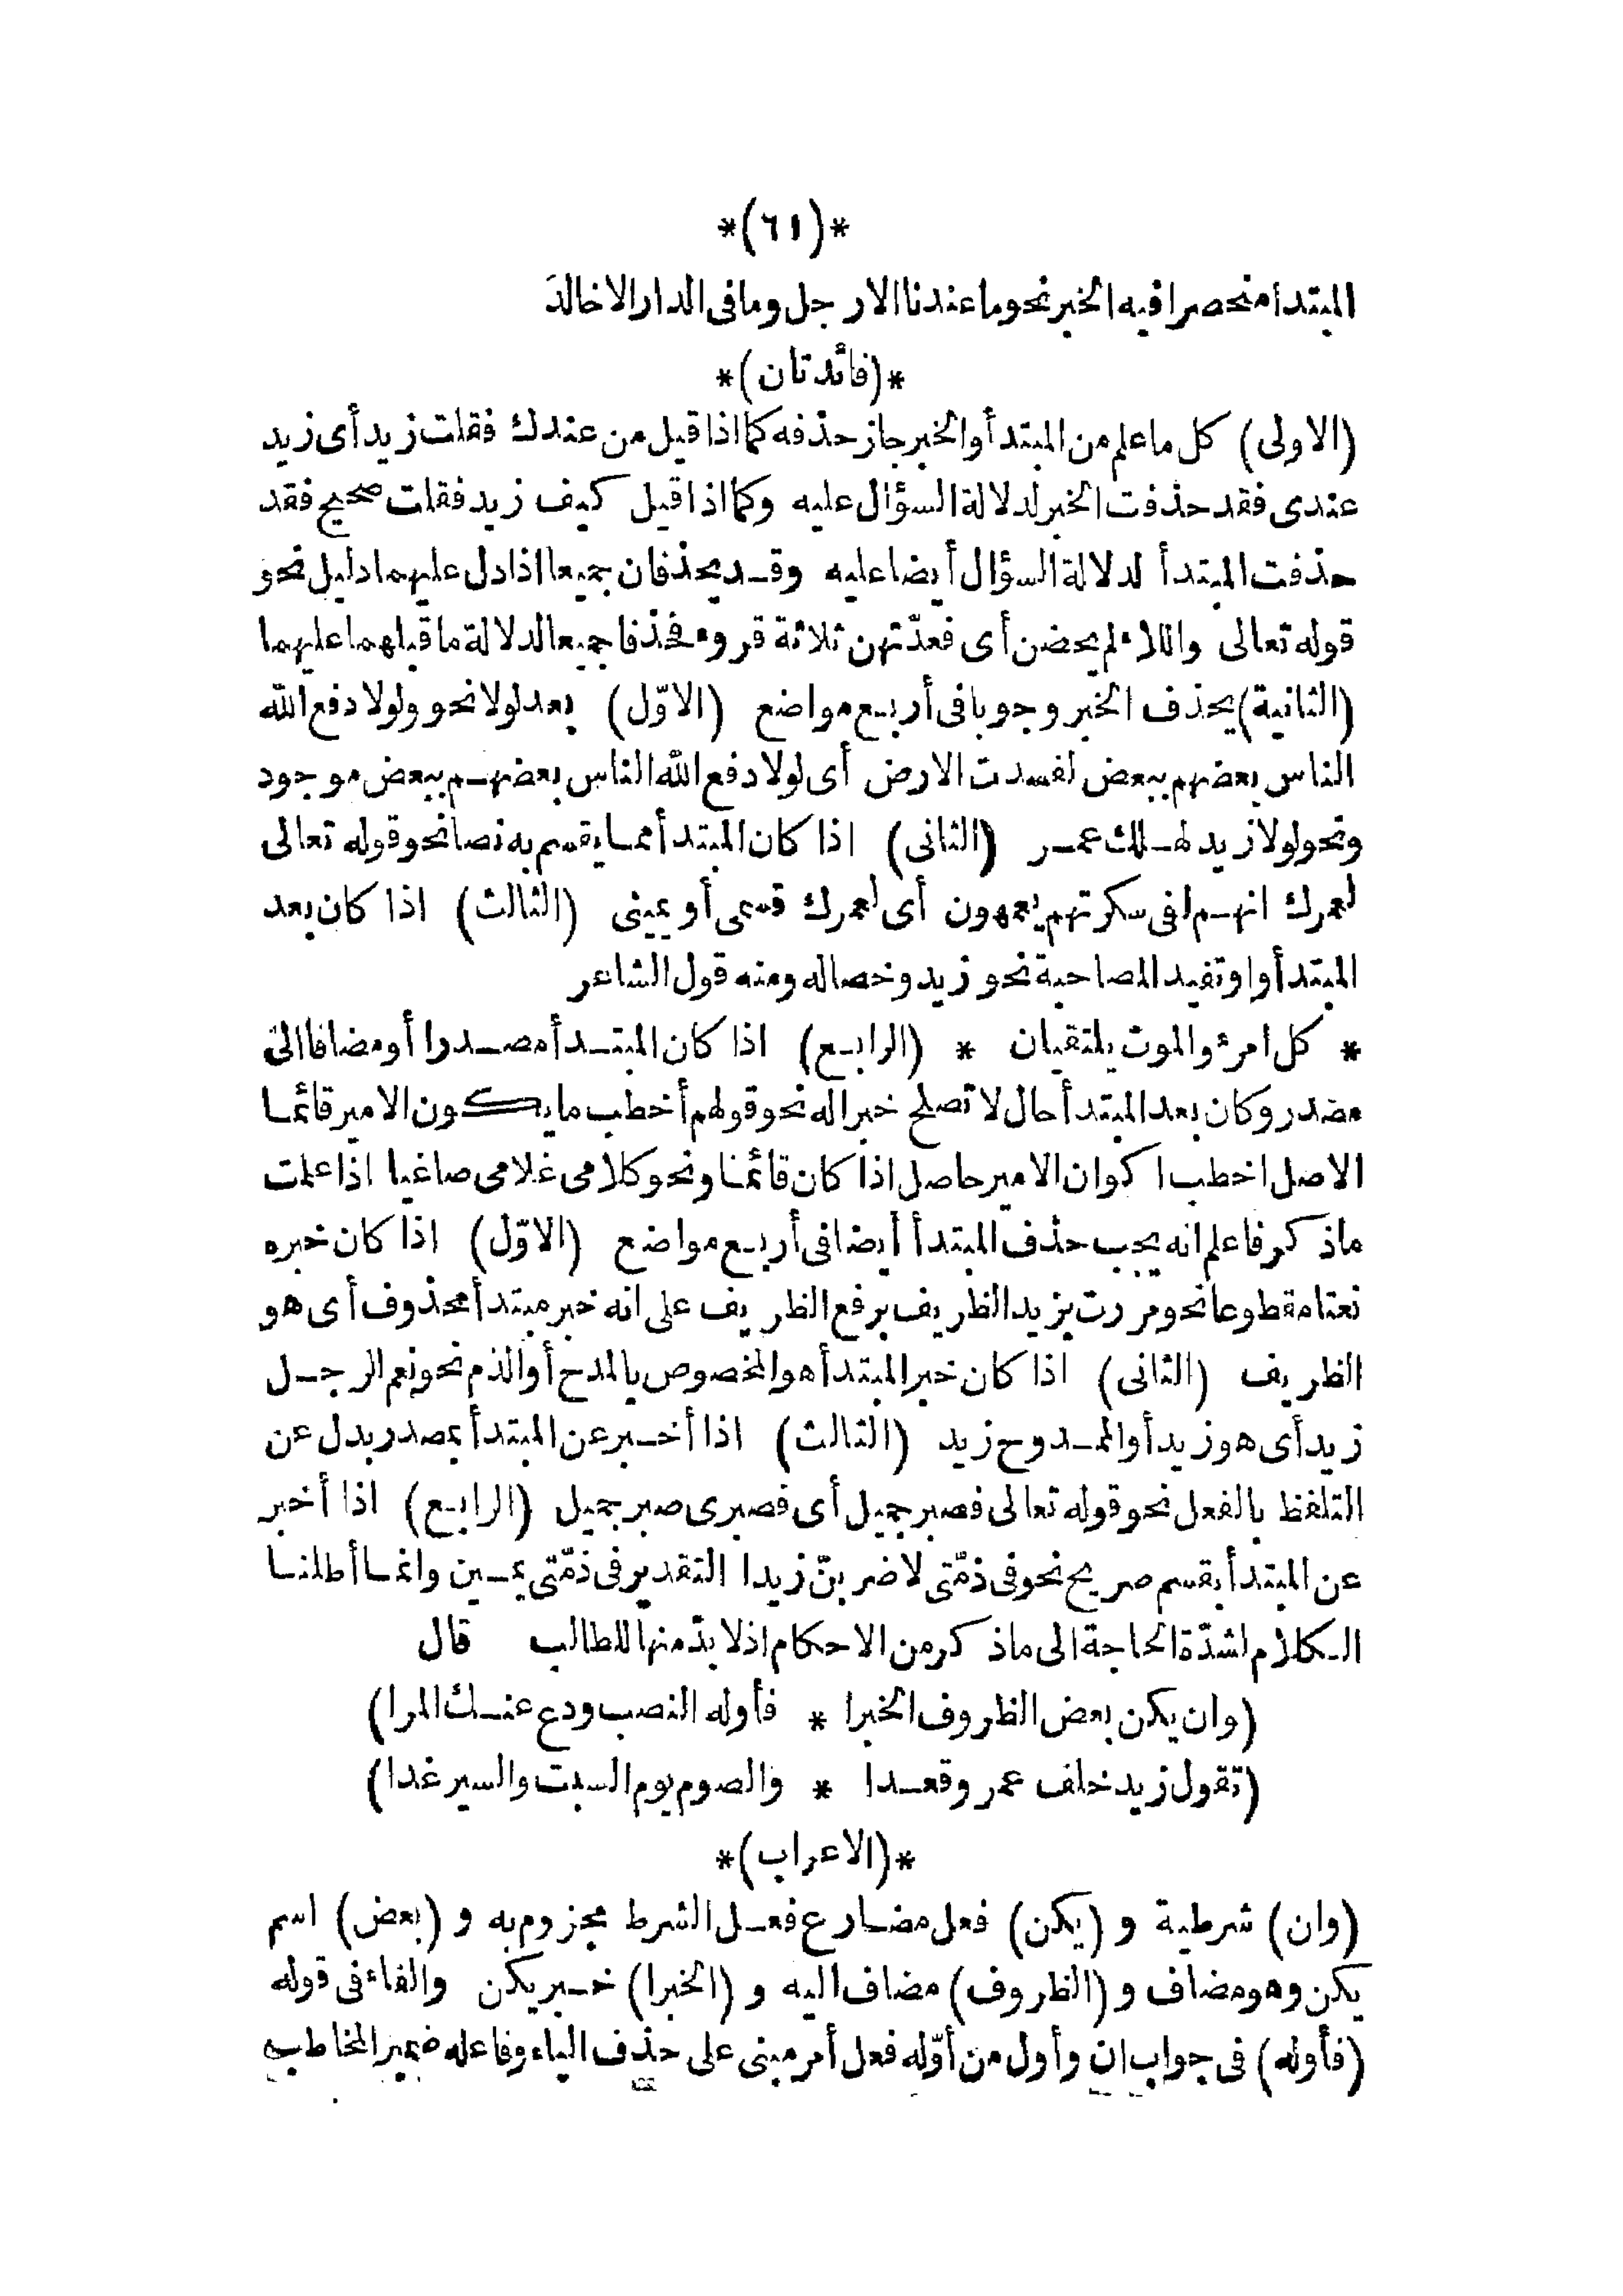 *(٦١)*
المبتدا منحصرا فيه الخبر نحو ما عندنا الا رجل وما فى الدار الا خالد
*(فائدتان)*
(الاولى) كل ما علم من المبتدأ والخبر جاز حذفه كما اذا قيل من عندك فقلت زيد أى زيد
عندى فقد حذفت الخبر لدلالة السؤال عليه وكما اذا قيل كيف زيد فقلت صحيح فقد
حذفت المبتدأ لدلالة السؤال أيضا عليه وقد يحذفان جميعا اذا دل عليهما دليل نحو
قوله تعالى واللاء لم يحضن أى فعدّتهن ثلاثة قروء فحذفا جميعا لدلالة ما قبلهما عليهما
(الثانية) يحذف الخبر وجوبا فى أربع مواضع (الاوّل) بعد لولا نحو ولولا دفع الله
الناس بعضهم ببعض لفسدت الارض أى لولا دفع الله الناس بعضهم ببعض موجود
ونحو لولا زيد لهلك عمر (الثانى) اذا كان المبتدأ مما يقسم به نصا نحو قوله تعالى
لعمرك انهم لفى سكرتهم يعمهون أى لعمرك قسمى أو يمينى (الثالث) اذا كان بعد
المبتدأ واو تفيد المصاحبة نحو زيد وخصاله ومنه قول الشاعر
* كل امرئ والموت يلتقيان * (الرابع) اذا كان المبتدأ مصدرا أو مضافا الى
مصدر وكان بعد المبتدأ حال لا تصلح خبرا له نحو قولهم أخطب ما يكون الامير قائما
الاصل اخطب اكوان الامير حاصل اذا كان قائما ونحو كلامى غلامى صاغيا اذا علمت
ما ذكر فاعلم انه يجب حذف المبتدأ أيضا فى أربع مواضع (الاوّل) اذا كان خبره
نعتا مقطوعا نحو مررت بزيد الظريف برفع الظريف على انه خبر مبتدأ محذوف أى هو
الظريف (الثانى) اذا كان خبر المبتدأ هو المخصوص بالمدح أو الذم نحو نعم الرجل
زيد أى هو زيد أو الممدوح زيد (الثالث) اذا أخبر عن المبتدأ بمصدر بدل عن
التلفظ بالفعل نحو قوله تعالى فصبر جميل أى فصبرى صبر جميل (الرابع) اذا أخبر
عن المبتدأ بقسم صريح نحو فى ذمّتى لاضربنّ زيدا التقدير فى ذمّتى يمين وانما أطلنا
الكلام لشدّة الحاجة الى ما ذكر من الاحكام اذ لا بدّ منها للطالب قال
(وان يكن بعض الظروف الخبرا * فأوله النصب ودع عنك المرا)
(تقول زيد خلف عمرو قعدا * والصوم يوم السبت والسير غدا)
*(الاعراب)*
(وان) شرطية و (يكن) فعل مضارع فعل الشرط مجزوم به و (بعض) اسم
يكن وهو مضاف و (الظروف) مضاف اليه و (الخبرا) خبر يكن والفاء فى قوله
(فأوله) فى جواب ان وأول من أوّله فعل أمر مبنى على حذف الياء وفاعله ضمير المخاطب